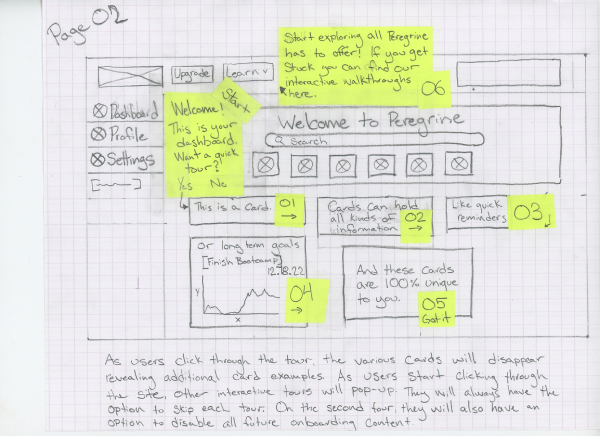 Page 02
Start exploring all Peregrine
has to offer! If you get
Stuck you can find our
interactive walkthroughs
here.
06
Upgrade
Learn v
Start
Welcome!
This is your
dashboard.
Want a quick
tour?
Yes No
Dashboard
Profile
Settings
Welcome to Peregrine
Search
This is a Card.
01
Cards can hold
all kinds of
information
02
Like quick
reminders
03
Or long term goals
[Finish Bootcamp]
12.18.22
Y
X
04
And these Cards
are 100% unique
to you.
05
Got it
As users click through the tour, the various cards will disappear
revealing additional card examples. As users start clicking through
the site, other interactive tours will pop-up. They will always have the
option to skip each tour. On the second tour, they will also have an
option to disable all future onboarding content.